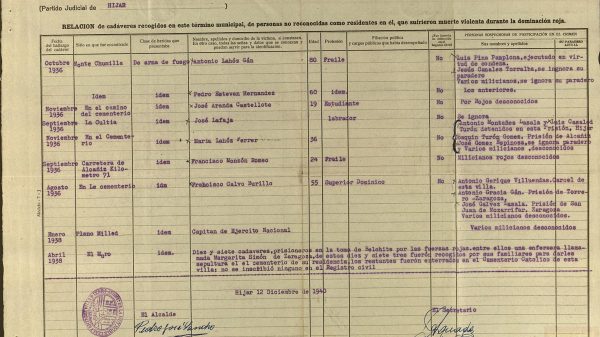 (Partido Judicial de HIJAR
RELACION de cadáveres recogidos en este término municipal, de personas no reconocidas como residentes en él, que sufrieron muerte violenta durante la dominación roja.
Fecha del hallazgo del cadáver
Sitio en que fué encontrado
Clase de heridas que presentaba
Nombre y apellidos de la víctima, si constasen.
EDAD
Profesión
Filiación política y cargos públicos que haya desempeñado
PERSONAS SOSPECHOSAS DE PARTICIPACIÓN EN EL CRIMEN
Sus nombres y apellidos
Octubre 1936 Monte Chumilla De arma de fuego Antonio Lahóz Gán 80 Fraile No Luis Pina Pamplona, ejecutado en virtud de condena.
Jesús Canales Torralba, se ignora su paradero
Varios milicianos, se ignora su paradero
Idem idem Pedro Esteven Hernandes 60 idem. No Los anteriores.
Noviembre 1936 En el camino del cementerio idem José Aranda Castellote 19 Estudiante No Por Rojos desconocidos
Septiembre 1936 La Cultia idem José Lafaja Labrador No Se ignora
Noviembre 1936 En el Cementerio idem Maria Lahóz Ferrer 36 No
Antonio Montañes Lasala y Luis Casaled Turón detenidos en esta Prisión, Hijar
Joaquin Turón Gomez. Prisión de Alcañiz
José Gomez Espinosa, se ignora paradero
Varios milicianos desconocidos
Septiembre 1936 Carretera de Alcañiz Kilometro 71 idem Francisco Monzón Romeo 24 Fraile No Milicianos rojos desconocidos
Agosto 1936 En Le cementerio idem Francisco Calvo Burillo 55 Superior Dominico No Antonio Gerique Villuendas. Carcel de esta villa.
Antonio Gracia Gán. Prisión de Torrero Zaragoza.
José Galvez Lasala. Prisión de San Juan de Mozarrifar. Zaragoza
Varios milicianos desconocidos.
Enero 1938 Plano Milled Capitan de Ejercito Nacional Varios milicianos desconocidos
Abril 1938 idem. Diez y siete cadaveres, prisioneros en la toma de Belchite por las fuerzas rojas, entre ellos una enfermera llamada Margarita Sinón de Zaragoza, de estos diez y siete tres fueron recogidos por sus familiares para darles sepultura en el cementerio de su residencia, los restantes fueron enterrados en el Cementerio Catolico de esta villa; no se inscribió ninguno en el Registro civil
Hijar 12 Diciembre de 1940
El Alcalde El Secretario